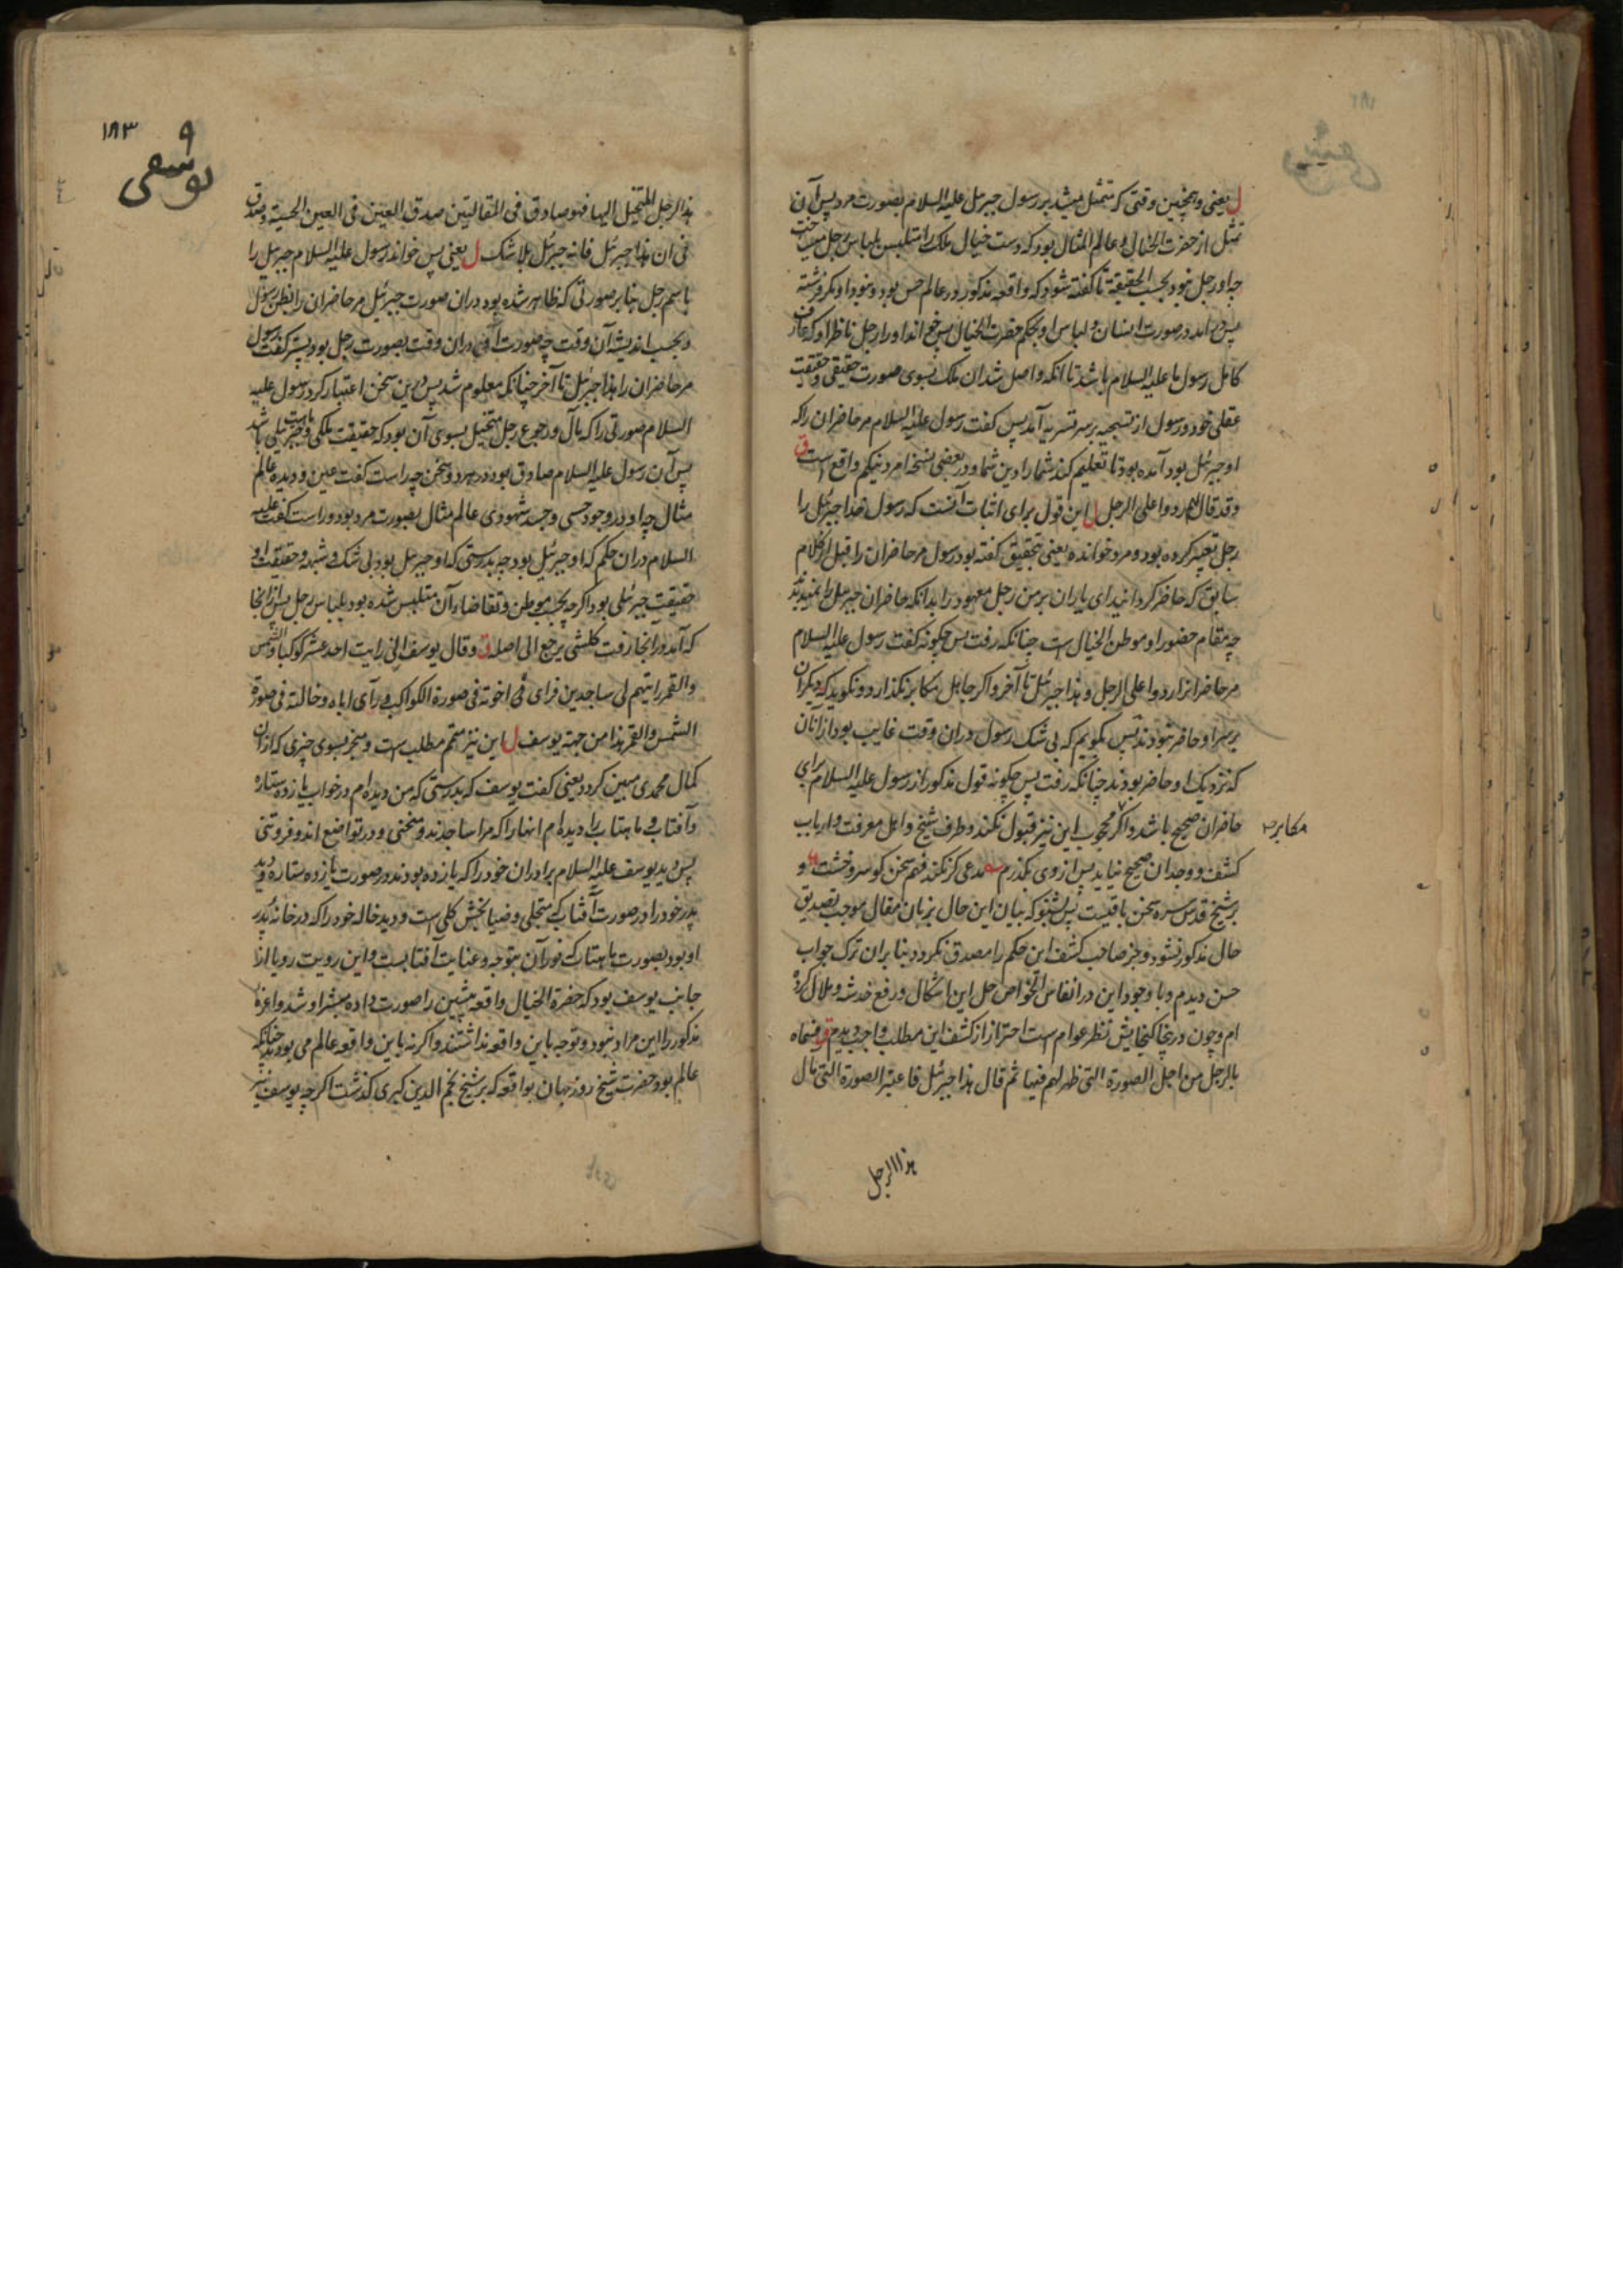 ل یعنی و همچنین وقتی که متمثل میشد بر رسول جبرئل علیه السلام بصورت مرد پس آن
تمثل از حضرت الخیال و عالم المثال بود که دست خیال ملک را متلبس بلباس رجل
چه او رجل نبود بحسب الحقیقة تا گفته شود که واقعه مذکور در عالم حس بود و نبود او مگر فرشته
پس در آمد در صورت انسان و لباس او بحکم حضرت الخیال او را رجل ناظر او که عارف
کامل رسول ما علیه السلام باشد تا آنکه واصل شد آن ملک بسوی صورت حقیقی و حقیقت
عقلی خود و رسول از تسجیه بر سر تسریه آمد پس گفت رسول علیه السلام مر حاضران را که
او جبرئل بود آمده بود تا تعلیم کند شما را دین شما و در بعضی نسخ امر دینکم واقع است ق
و قد قال لهم ردوا علی الرجل ل این قول برای اثبات آنست که رسول خدا جبرئل را
رجل تعبیر کرده بود و مرد خوانده یعنی بتحقیق گفته بود رسول مر حاضران را قبل از کلام
سابق که حاضر گردانید ای یاران بر من رجل معهود را بدانکه حاضران جبرئل را نمیدیدند
چه مقام حضور او موطن الخیال است چنانکه رفت پس چگونه گفت رسول علیه السلام
مر حاضرانرا ردوا علی الرجل و هذا جبرئل تا آخر و اگر جاهل مکابر نگذارد و نگوید که دیگران
بر سر او حاضر نبودند پس بگویم که بی شک رسول در آن وقت غایب بود از آنان
که نزدیک او حاضر بودند چنانکه رفت پس چگونه قول مذکور از رسول علیه السلام برای
حاضران صحیح باشد و اگر محجوب این نیز قبول نکند و طرف شیخ و اهل معرفت و ارباب
مکابره
کشف و وجدان صحیح نیاید پس از وی بگذرم مدعی گر نکند فهم سخن گو سر و خشت و
بر شیخ قدس سره سخن باقیست پس بشنو که بیان این حال بزبان مقال موجب تصدیق
حال مذکور نشود و جز صاحب کشف این حکم را مصدق نگردد بنابر آن ترک جواب
حسن دیدم و با وجود این در انفاس الخواص حل این اشکال و رفع خدشه و ملال کرده
ام و چون در اینجا گنجایش نظر عوام است احتراز از کشف این مطلب واجب دیدم ق فسماه
بالرجل من اجل الصورة التی ظهر لهم فیها ثم قال هذا جبرئل فاعتبر الصورة التی مآل
هذا الرجل
۱۸۳
یوسفی
هذا الرجل المتخیل الیها فهو صادق فی المقالتین صدق العین فی العین الحسیة و صدق
فی ان هذا جبرئل فانه جبرئل بلا شک ل یعنی پس خواند رسول علیه السلام جبرئل را
باسم رجل بنابر صورتی که ظاهر شده بود در آن صورت جبرئل مر حاضران را بنظر رسول
و بحسب اندیشه آن وقت چه صورت آنی در آن وقت بصورت رجل بود پستر گفت رسول
مر حاضران را هذا جبرئل تا آخر چنانکه معلوم شد پس درین سخن اعتبار کرد رسول علیه
السلام صورتی را که مآل و رجوع رجل متخیل بسوی آن بود که حقیقت ملکی و جبرئیلی باشد
پس آن رسول علیه السلام صادق بود در هر دو سخن چه راست گفت عین و دیده عالم
مثال چه او در وجود حسی و جسد شهودی عالم مثال بصورت مرد بود و راست گفت علیه
السلام در آن حکم که او جبرئیل بود چه بدرستی که او جبرئل بود بی شک و شبهه و حقیقت او
حقیقت جبرئلی بود اگر چه بحسب موطن و تقاضاء آن متلبس شده بود بلباس رجل پس از آنجا
که آمد در آنجا رفت کلشی یرجع الی اصله ق و قال یوسف انی رایت احد عشر کوکبا و الشمس
و القمر رایتهم لی ساجدین فرای اخوته فی صورة الکواکب و رآی اباه و خالته فی صورة
الشمس و القمر هذا من جهة یوسف ل این نیز متمم مطلب است و منجر بسوی چیزی که از آن
کمال محمدی مبین گردد یعنی گفت یوسف که بدرستی که من دیده ام در خواب یازده ستاره
و آفتاب و ماهتاب را دیده ام انها را که مرا ساجدند و منحنی و در تواضع اند و فروتنی
پس دید یوسف علیه السلام برادران خود را که یازده بودند در صورت یازده ستاره و دید
پدر خود را در صورت آفتاب که متجلی و ضیا بخش کلی است و دید خاله خود را که در خانه پدر
او بود بصورت ماهتاب که نور آن بتوجه و عنایت آفتابست و این رویت رویا از
جانب یوسف بود که حضرة الخیال واقعه پیشین را صورت داده مبشر او شد و اعزه
مذکور را این مراد نبود و توجه باین واقعه نداشتند و اگر نه باین واقعه عالم می بودند چنانکه
عالم بود حضرت شیخ روزبهان بواقعه که بر شیخ نجم الدین کبری گذشت اگر چه یوسف نیز